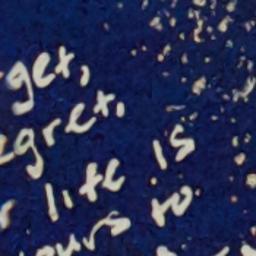 get,
egret,
r life is
ours to